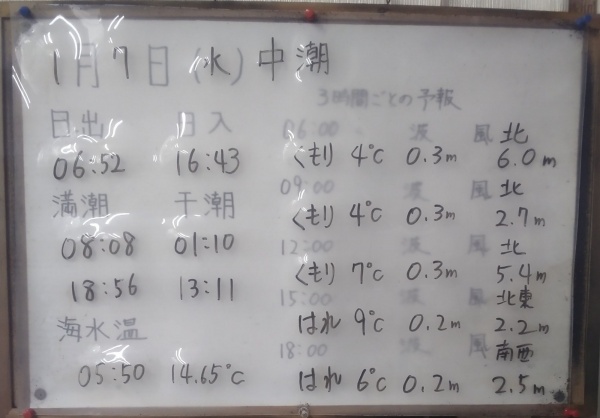 1月7日(水)中潮
3時間ごとの予報
日出 日入
06:52 16:43
満潮 干潮
08:08 01:10
18:56 13:11
海水温
05:50 14.65℃
06:00 波 風 北
くもり 4℃ 0.3m 6.0m
09:00 波 風 北
くもり 4℃ 0.3m 2.7m
12:00 波 風 北
くもり 7℃ 0.3m 5.4m
15:00 波 風 北東
はれ 9℃ 0.2m 2.2m
18:00 波 風 南西
はれ 6℃ 0.2m 2.5m